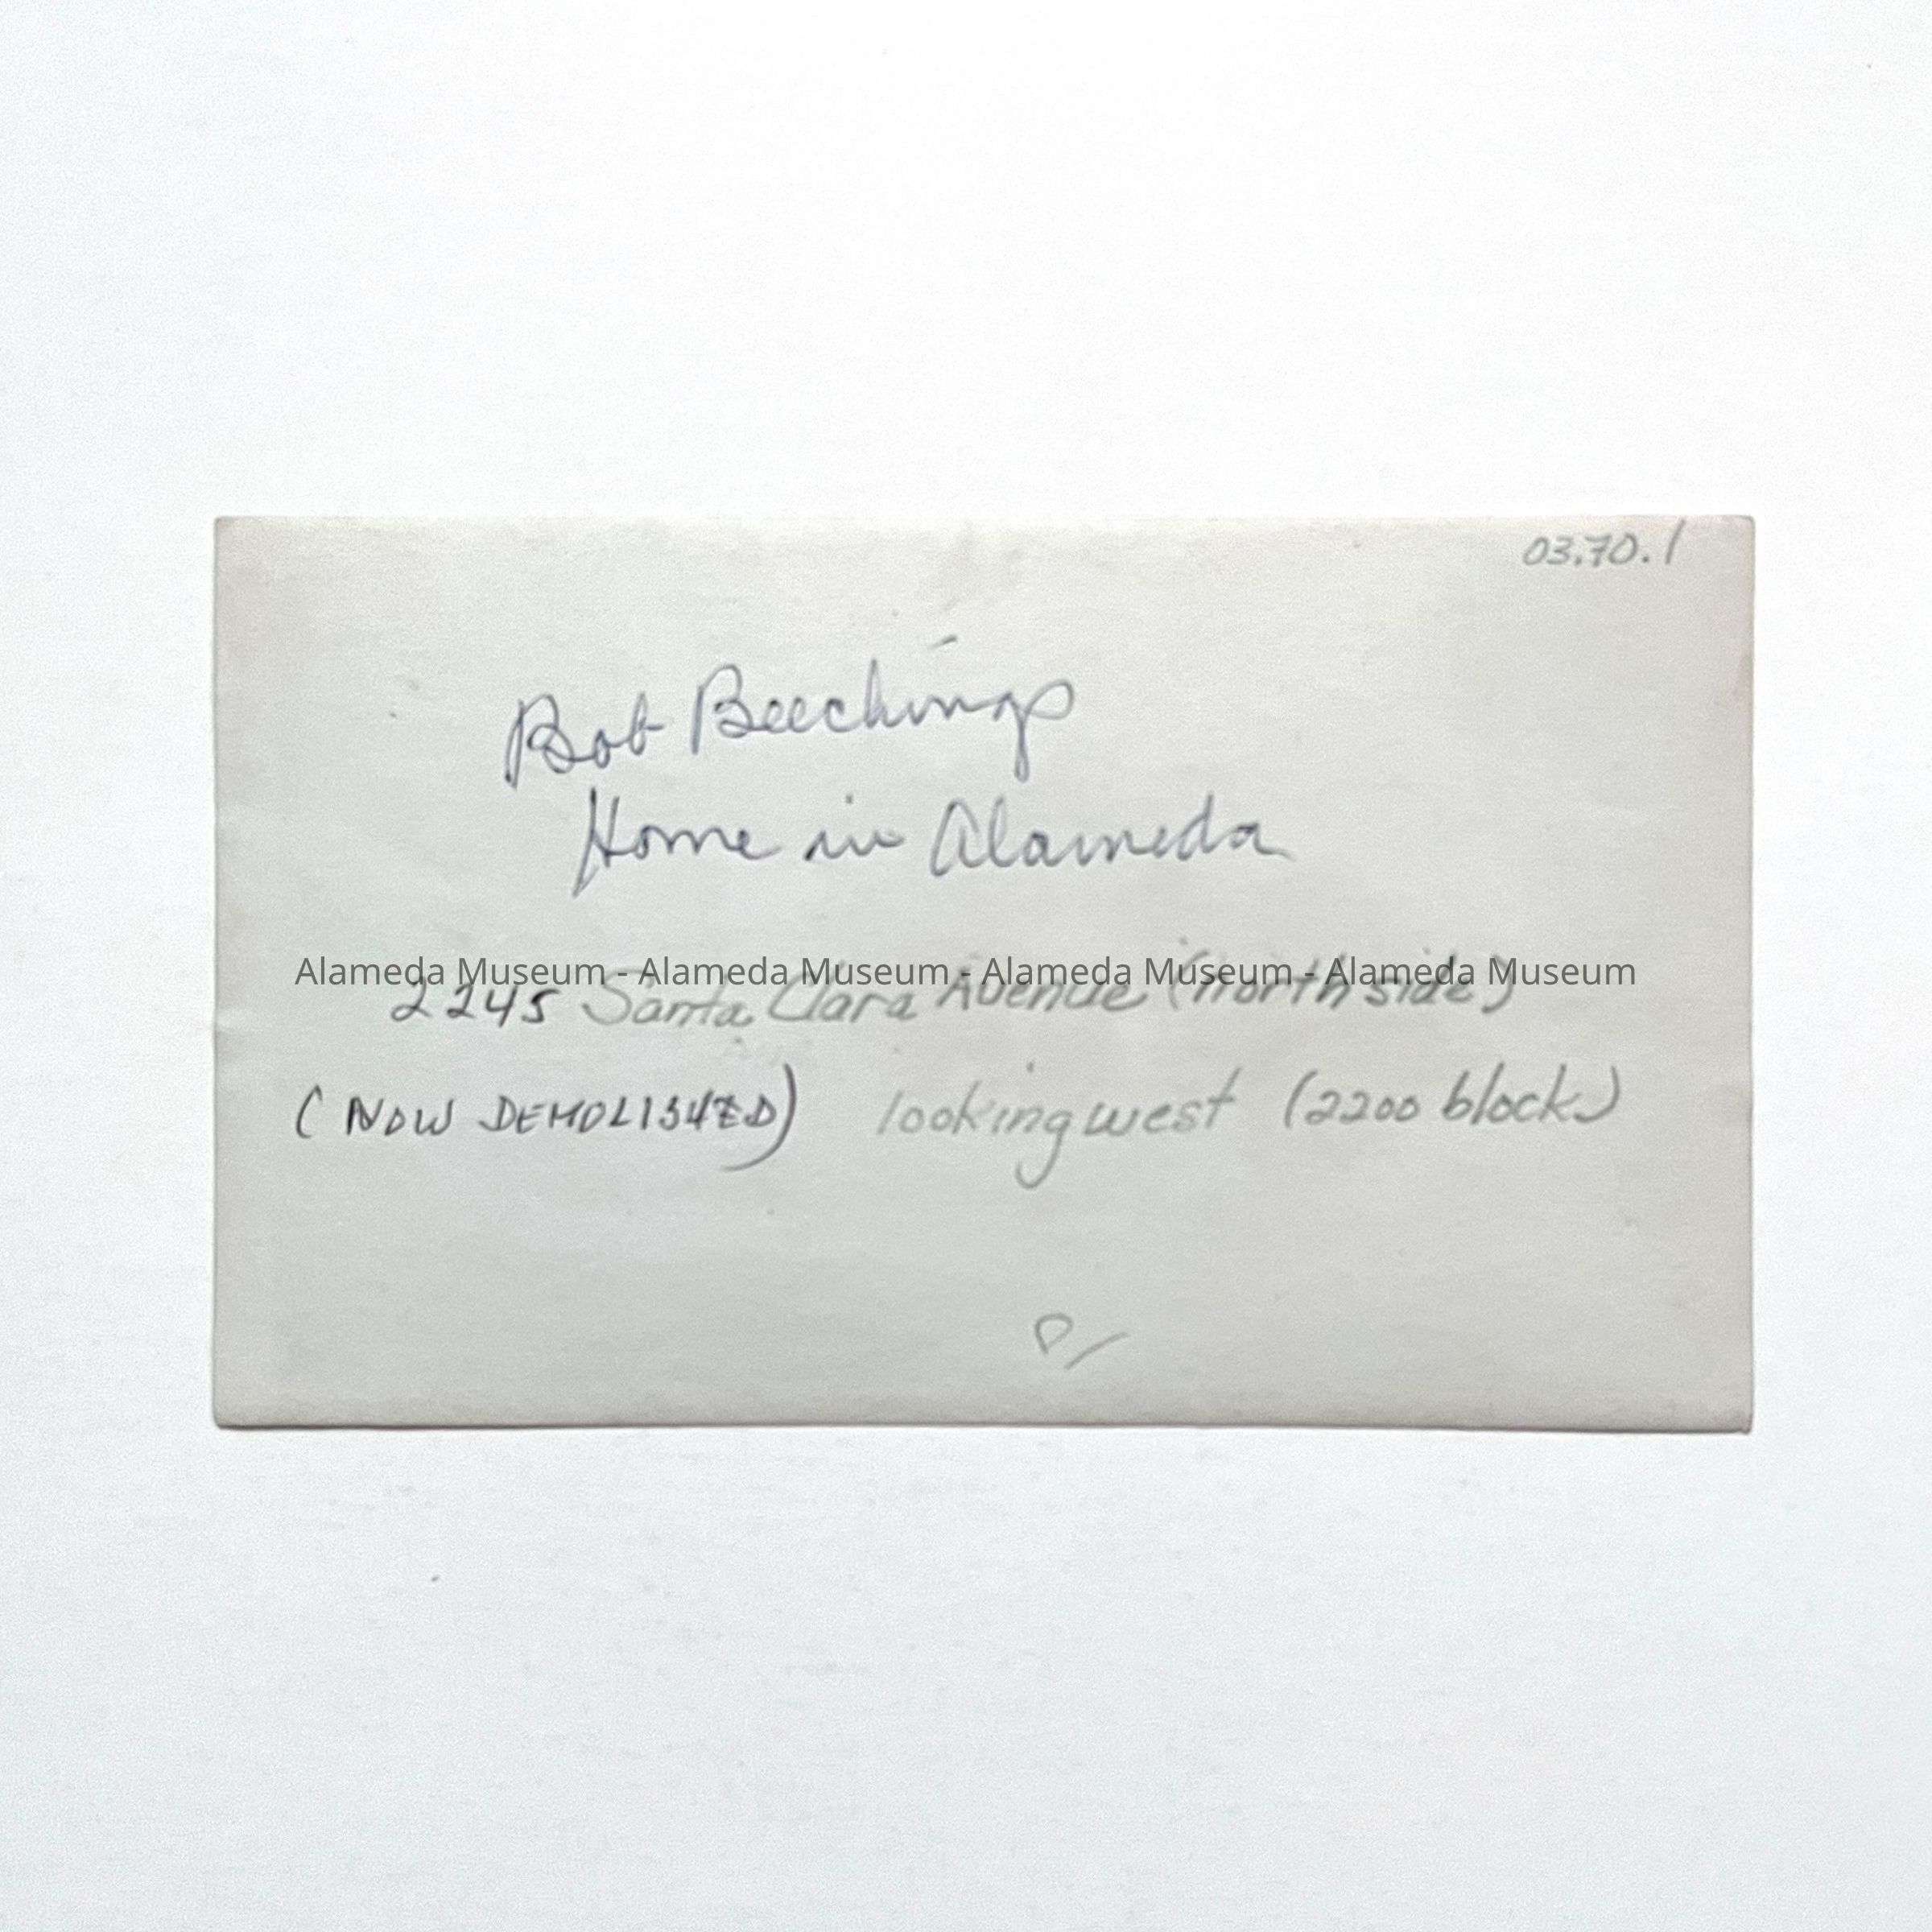 03.70.1
Bob Beechings
Home in Alameda
Alameda Museum - Alameda Museum - Alameda Museum - Alameda Museum
2245 Santa Clara Avenue (north side)
(NOW DEMOLISHED) looking west (2200 block)